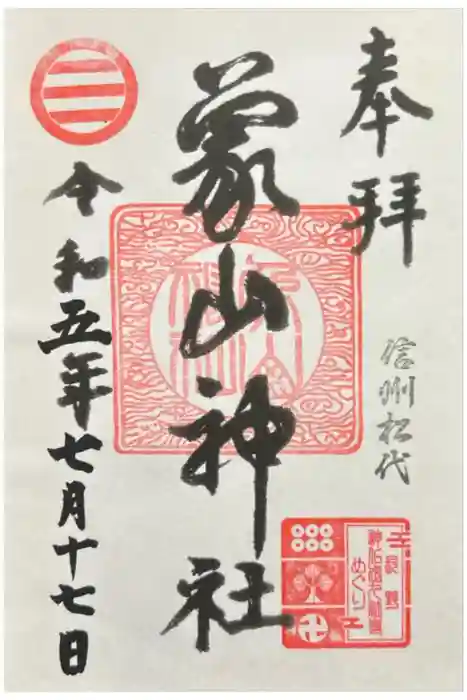 奉拝
信州松代
象山神社
令和五年七月十七日
めぐり